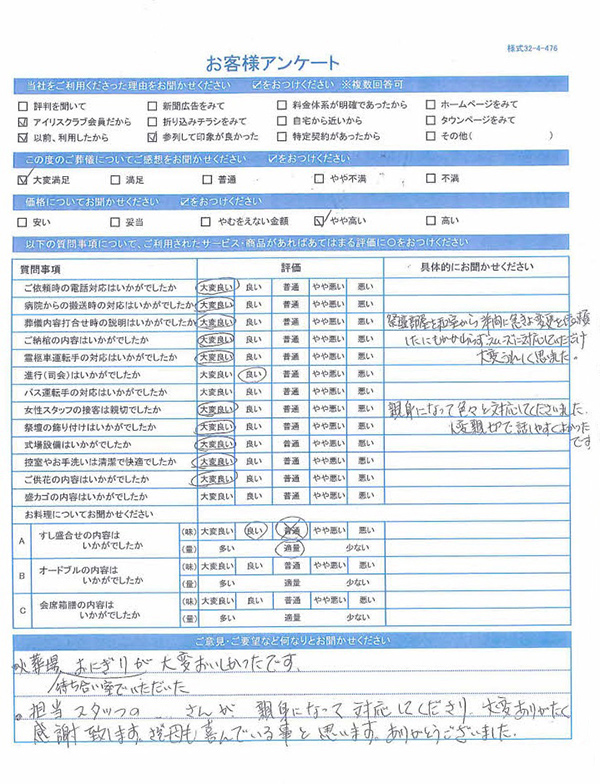 様式32-4-476
お客様アンケート
当社をご利用くださった理由をお聞かせください ☑をおつけください ※複数回答可
□ 評判を聞いて □ 新聞広告をみて □ 料金体系が明確であったから □ ホームページをみて
☑ アイリスクラブ会員だから □ 折り込みチラシをみて □ 自宅から近いから □ タウンページをみて
☑ 以前、利用したから ☑ 参列して印象が良かった □ 特定契約があったから □ その他( )
この度のご葬儀についてご感想をお聞かせください ☑をおつけください
☑ 大変満足 □ 満足 □ 普通 □ やや不満 □ 不満
価格についてお聞かせください ☑をおつけください
□ 安い □ 妥当 □ やむをえない金額 ☑ やや高い □ 高い
以下の質問事項について、ご利用されたサービス・商品があればあてはまる評価に○をおつけください
質問事項 評価 具体的にお聞かせください
ご依頼時の電話対応はいかがでしたか 大変良い 良い 普通 やや悪い 悪い
病院からの搬送時の対応はいかがでしたか 大変良い 良い 普通 やや悪い 悪い
葬儀内容打合せ時の説明はいかがでしたか 大変良い 良い 普通 やや悪い 悪い 部屋を和室から洋間に急きょ変更を依頼
ご納棺の内容はいかがでしたか 大変良い 良い 普通 やや悪い 悪い したにもかかわらずスムーズに対応していただけ
霊柩車運転手の対応はいかがでしたか 大変良い 良い 普通 やや悪い 悪い 大変うれしく思れた。
進行(司会)はいかがでしたか 大変良い 良い 普通 やや悪い 悪い
バス運転手の対応はいかがでしたか 大変良い 良い 普通 やや悪い 悪い
女性スタッフの接客は親切でしたか 大変良い 良い 普通 やや悪い 悪い 親身になって色々と対応してくださいました。
祭壇の飾り付けはいかがでしたか 大変良い 良い 普通 やや悪い 悪い 大変親切で話しやすくよかった
式場設備はいかがでしたか 大変良い 良い 普通 やや悪い 悪い です
控室やお手洗いは清潔で快適でしたか 大変良い 良い 普通 やや悪い 悪い
ご供花の内容はいかがでしたか 大変良い 良い 普通 やや悪い 悪い
盛カゴの内容はいかがでしたか 大変良い 良い 普通 やや悪い 悪い
お料理についてお聞かせください
A すし盛合せの内容は (味) 大変良い 良い 普通 やや悪い 悪い
いかがでしたか (量) 多い 適量 少ない
B オードブルの内容は (味) 大変良い 良い 普通 やや悪い 悪い
いかがでしたか (量) 多い 適量 少ない
C 会席箱膳の内容は (味) 大変良い 良い 普通 やや悪い 悪い
いかがでしたか (量) 多い 適量 少ない
ご意見・ご要望など何なりとお聞かせください
・火葬場 おにぎりが 大変おいしかったです。
待ち合い室でいただいた
・担当スタッフの さんが 親身になって 対応してくださり、大変ありがたく
感謝致します。 母も喜んでいる事と思います。ありがとうございました。